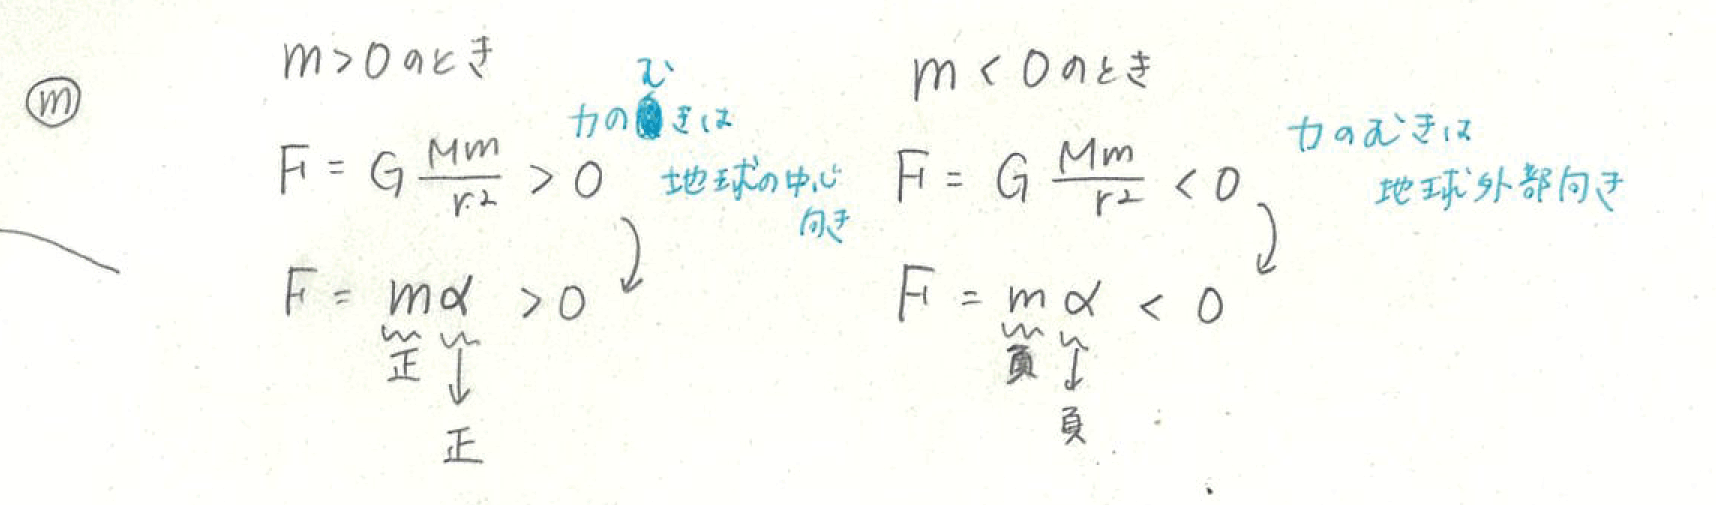 m
m > 0 のとき
む
力の きは
F = G Mm/r² > 0
地球の中心
向き
F = mα > 0
正
正
m < 0 のとき
力のむきは
F = G Mm/r² < 0
地球外部向き
F = mα < 0
負
負